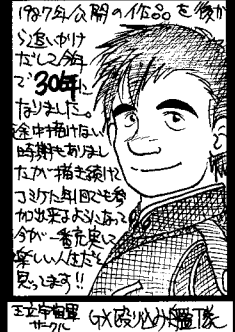 1987年公開の作品を後か
ら追いかけ
だして今年
で30年に
なりました。
途中描けない
時期もありまし
たが描き続けて
コミケに年1回でも参
加出来るようになって
今が一番充実して
楽しい人生だと
思ってます!!
王立宇宙軍
サークル
GX殴り込み艦隊